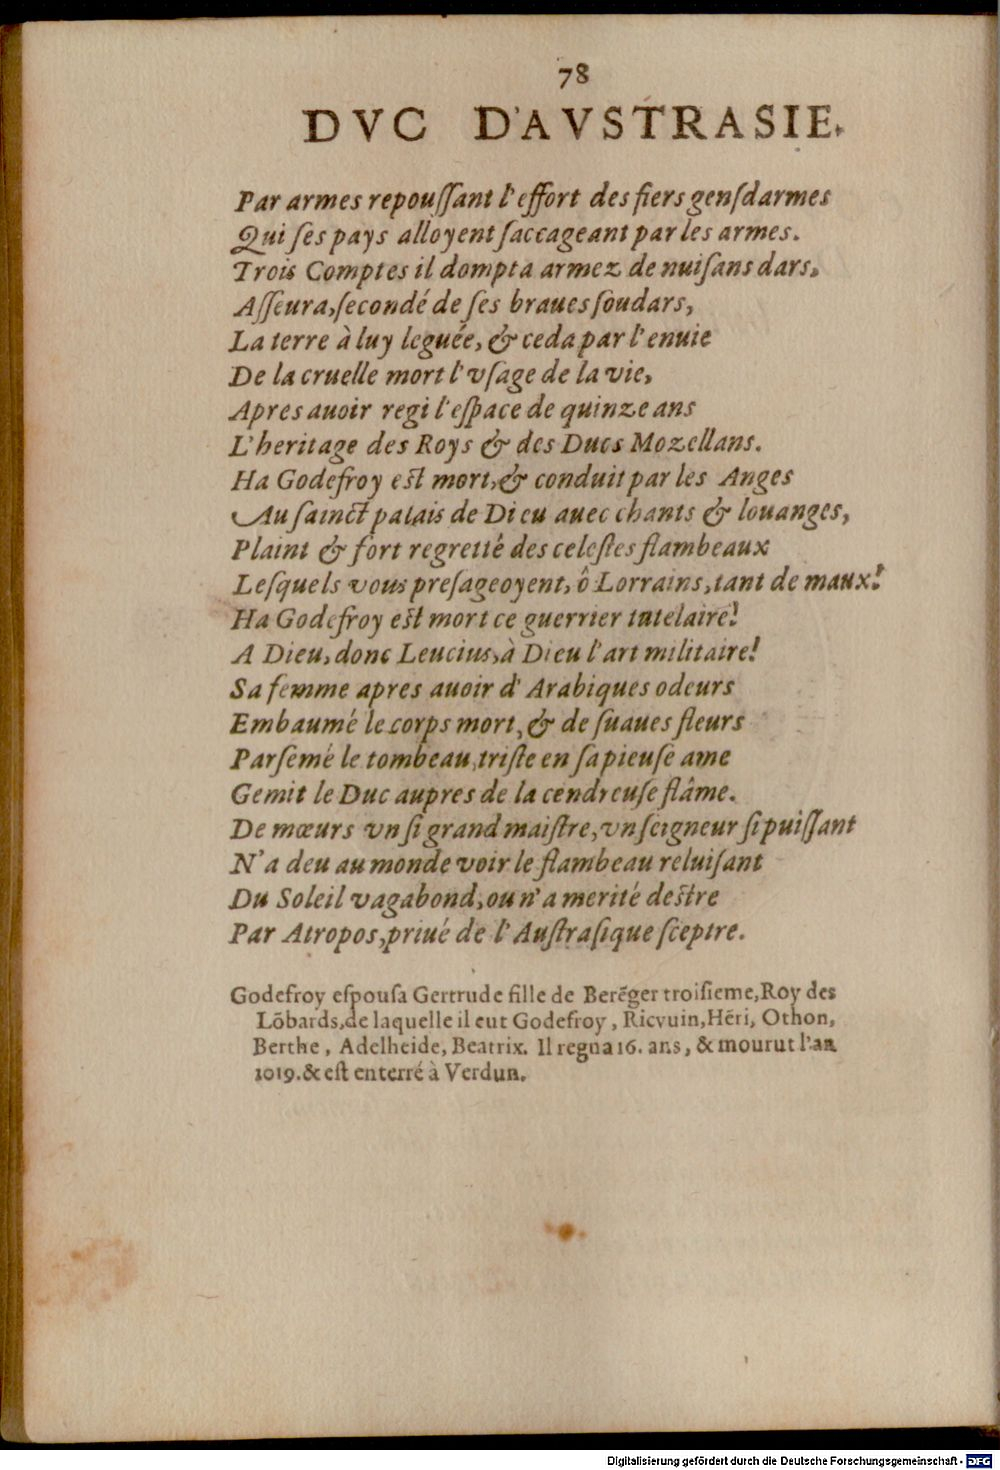 78
DVC D'AVSTRASIE.
Par armes repouſſant l'effort des fiers genſdarmes
Qui ſes pays alloyent ſaccageant par les armes.
Trois Comptes il dompta armez de nuiſans dars,
Aſſeura, ſecondé de ſes braues ſoudars,
La terre à luy leguée, & ceda par l'enuie
De la cruelle mort l'vſage de la vie,
Apres auoir regi l'eſpace de quinze ans
L'heritage des Roys & des Ducs Mozellans.
Ha Godefroy eſt mort, & conduit par les Anges
Au ſainct palais de Dieu auec chants & louanges,
Plaint & fort regretté des celeſtes flambeaux
Leſquels vous preſageoyent, ô Lorrains, tant de maux!
Ha Godefroy eſt mort ce guerrier tutelaire!
A Dieu, donc Leucius, à Dieu l'art militaire!
Sa femme apres auoir d'Arabiques odeurs
Embaumé le corps mort, & de ſuaues fleurs
Parſemé le tombeau, triſte en ſa pieuſe ame
Gemit le Duc aupres de la cendreuſe flâme.
De mœurs vn ſi grand maiſtre, vn ſeigneur ſi puiſſant
N'a deu au monde voir le flambeau reluiſant
Du Soleil vagabond, ou n'a merité deſtre
Par Atropos, priué de l'Auſtraſique ſceptre.
Godefroy eſpouſa Gertrude fille de Berẽger troiſieme, Roy des
Lõbards, de laquelle il eut Godefroy, Ricvuin, Hẽri, Othon,
Berthe, Adelheide, Beatrix. Il regna 16. ans, & mourut l'an
1019. & eſt enterré à Verdun.
Digitalisierung gefördert durch die Deutsche Forschungsgemeinschaft - DFG